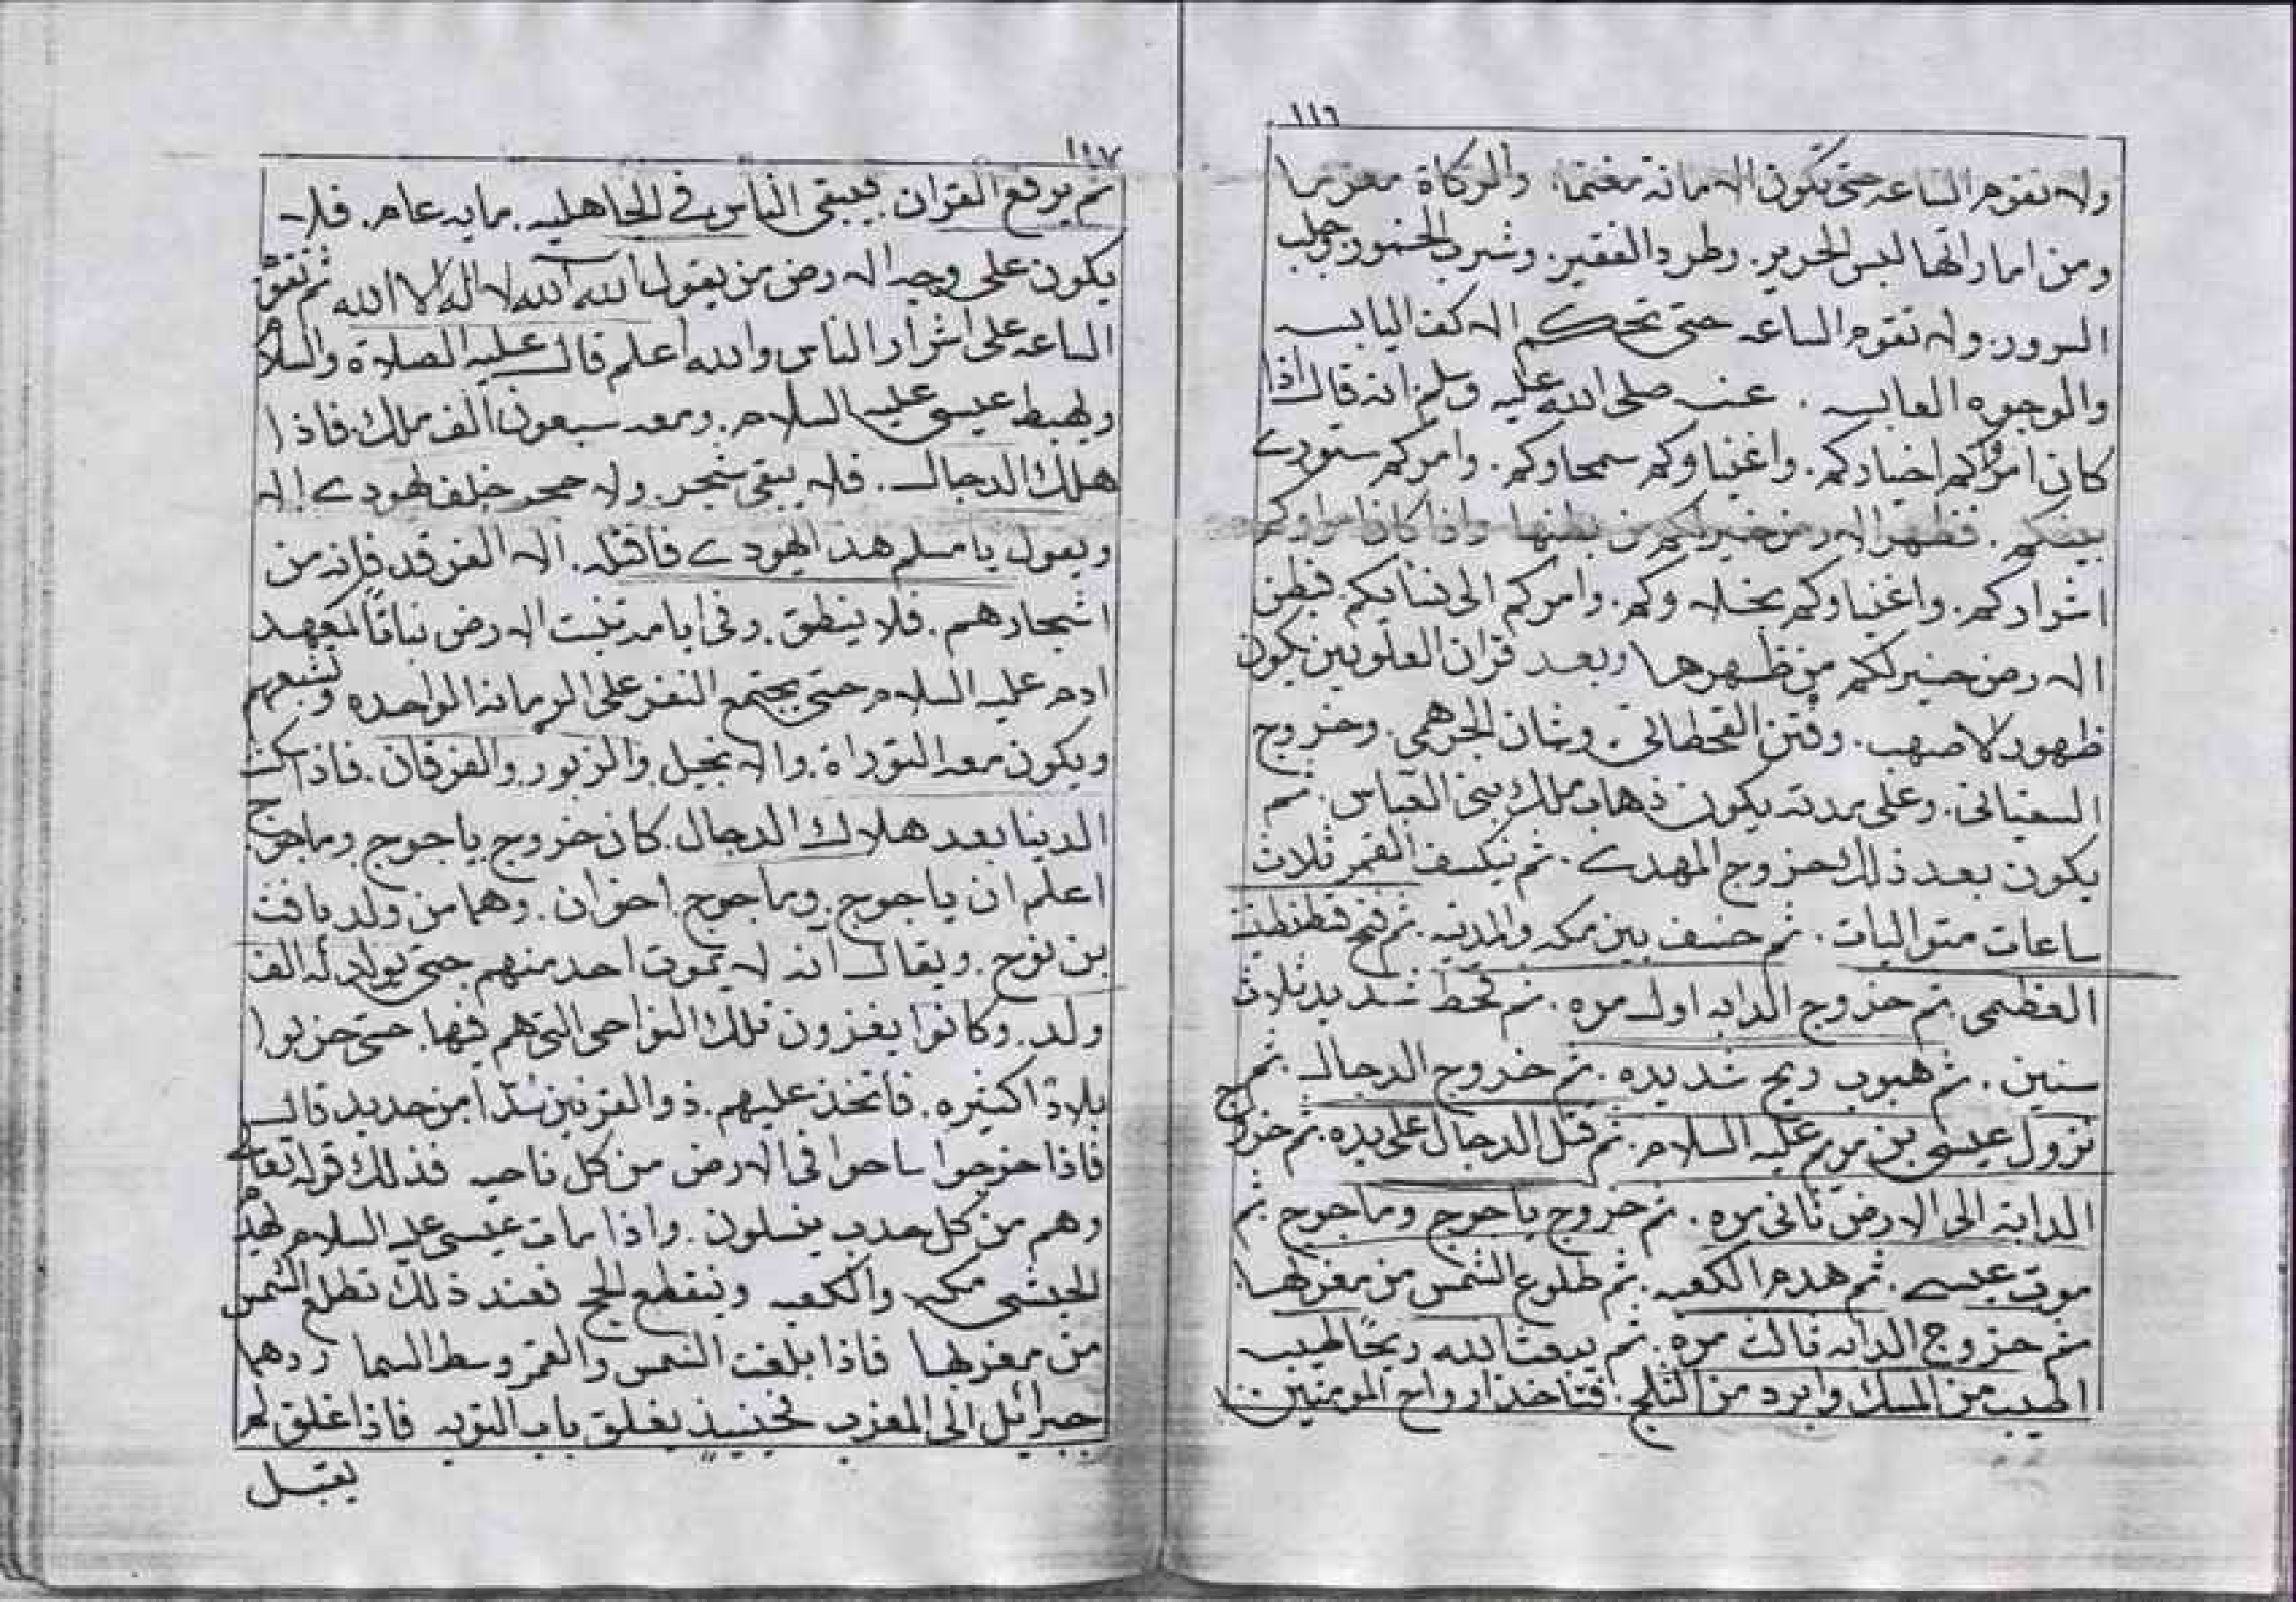 ١١٦
ولا تقوم الساعه حتى تكون الامانة مغنما. والزكاة مغرما
ومن اماراتها لبس الحرير. وطرد الفقير. وشرب الخمور وجلب
السرور. ولا تقوم الساعه حتى تحكم الاكف اليابسه
والوجوه العابسه. عنه صلى الله عليه وسلم انه قال اذا
كان امراوكم اخياركم. واغنياوكم سمحاوكم. وامركم ستورى
بينكم. فظهر الارض خير لكم من بطنها واذا كان امراوكم
اشراركم. واغنياوكم بخلاوكم. وامركم الى نسايكم. فبطن
الارض خير لكم من ظهرها وبعد قران العلويين يكون
ظهور لاصهب. وفتن القحطانى. وشان الجرهمى. وخروج
السفيانى. وعلى مدته يكون ذهاب ملك بنى العباس. ثم
يكون بعد ذلك خروج المهدى. ثم نكسف القمر ثلاث
ساعات متواليات. ثم خسف بين مكه والمدينه. ثم فتح قسطنطينيه
العظمى. ثم خروج الدابه اول مره. ثم قحط شديد ثلاث
سنين. ثم هبوب ريح شديده. ثم خروج الدجال. ثم
نزول عيسى بن مريم عليه السلام. ثم قتل الدجال على يده. ثم خروج
الدابة الى الارض ثانى مره. ثم خروج ياجوج وماجوج. ثم
موت عيسى. ثم هدم الكعبه. ثم طلوع الشمس من مغربها.
ثم خروج الدابه ثالث مره. ثم يبعث الله ريحًا طيب
اطيب من المسك وابرد من الثلج. فتاخذ ارواح المومنين
١١٧
ثم يرفع القران. فيبقى الناس فى الجاهليه. مايه عام. فلا
يكون على وجه الارض من يقول الله الله لا اله الا الله ثم تقوم
الساعه على اشرار الناس والله اعلم قال عليه الصلاة والسلام
ويهبط عيسى عليه السلام. ومعه سبعون الف ملك. فاذا
هلك الدجال. فلا يبقى شجر. ولا حجر خلفه يهودى الا
ويقول يا مسلم هذا يهودى فاقتله. الا الغرقد فانه من
اشجارهم. فلا ينطق. وفى ايامه تنبت الارض نباتًا كعهد
ادم عليه السلام حتى يجتمع النفر على الرمانه الواحده وتشبعهم
ويكون معه التوراة. والانجيل والزبور. والفرقان. فاذا مكث
الدينا بعد هلاك الدجال. كان خروج ياجوج وماجوج
اعلم ان ياجوج. وماجوج. اخوان. وهما من ولد يافث
بن نوح. ويقال انه لا يموت احد منهم حتى يولد له الف
ولد. وكانوا يغزون تلك النواحى التى هم فيها. حتى خربوا
بلادًا كثيره. فاتخذ عليهم. ذوالقرنين سدًا من حديد قال
فاذا خرجوا ساحوا فى الارض من كل ناحيه فذلك قوله تعالى
وهم من كل حدب ينسلون. واذا مات عيسى عليه السلام يهدم
الحبشى مكه والكعبه وينقطع الحج فعند ذلك تطلع الشمس
من مغربها فاذا بلغت الشمس والقمر وسط السما ردهما
جبرائيل الى المغرب فحينيذ يغلق باب التوبه فاذا اغلق لم
يقبل